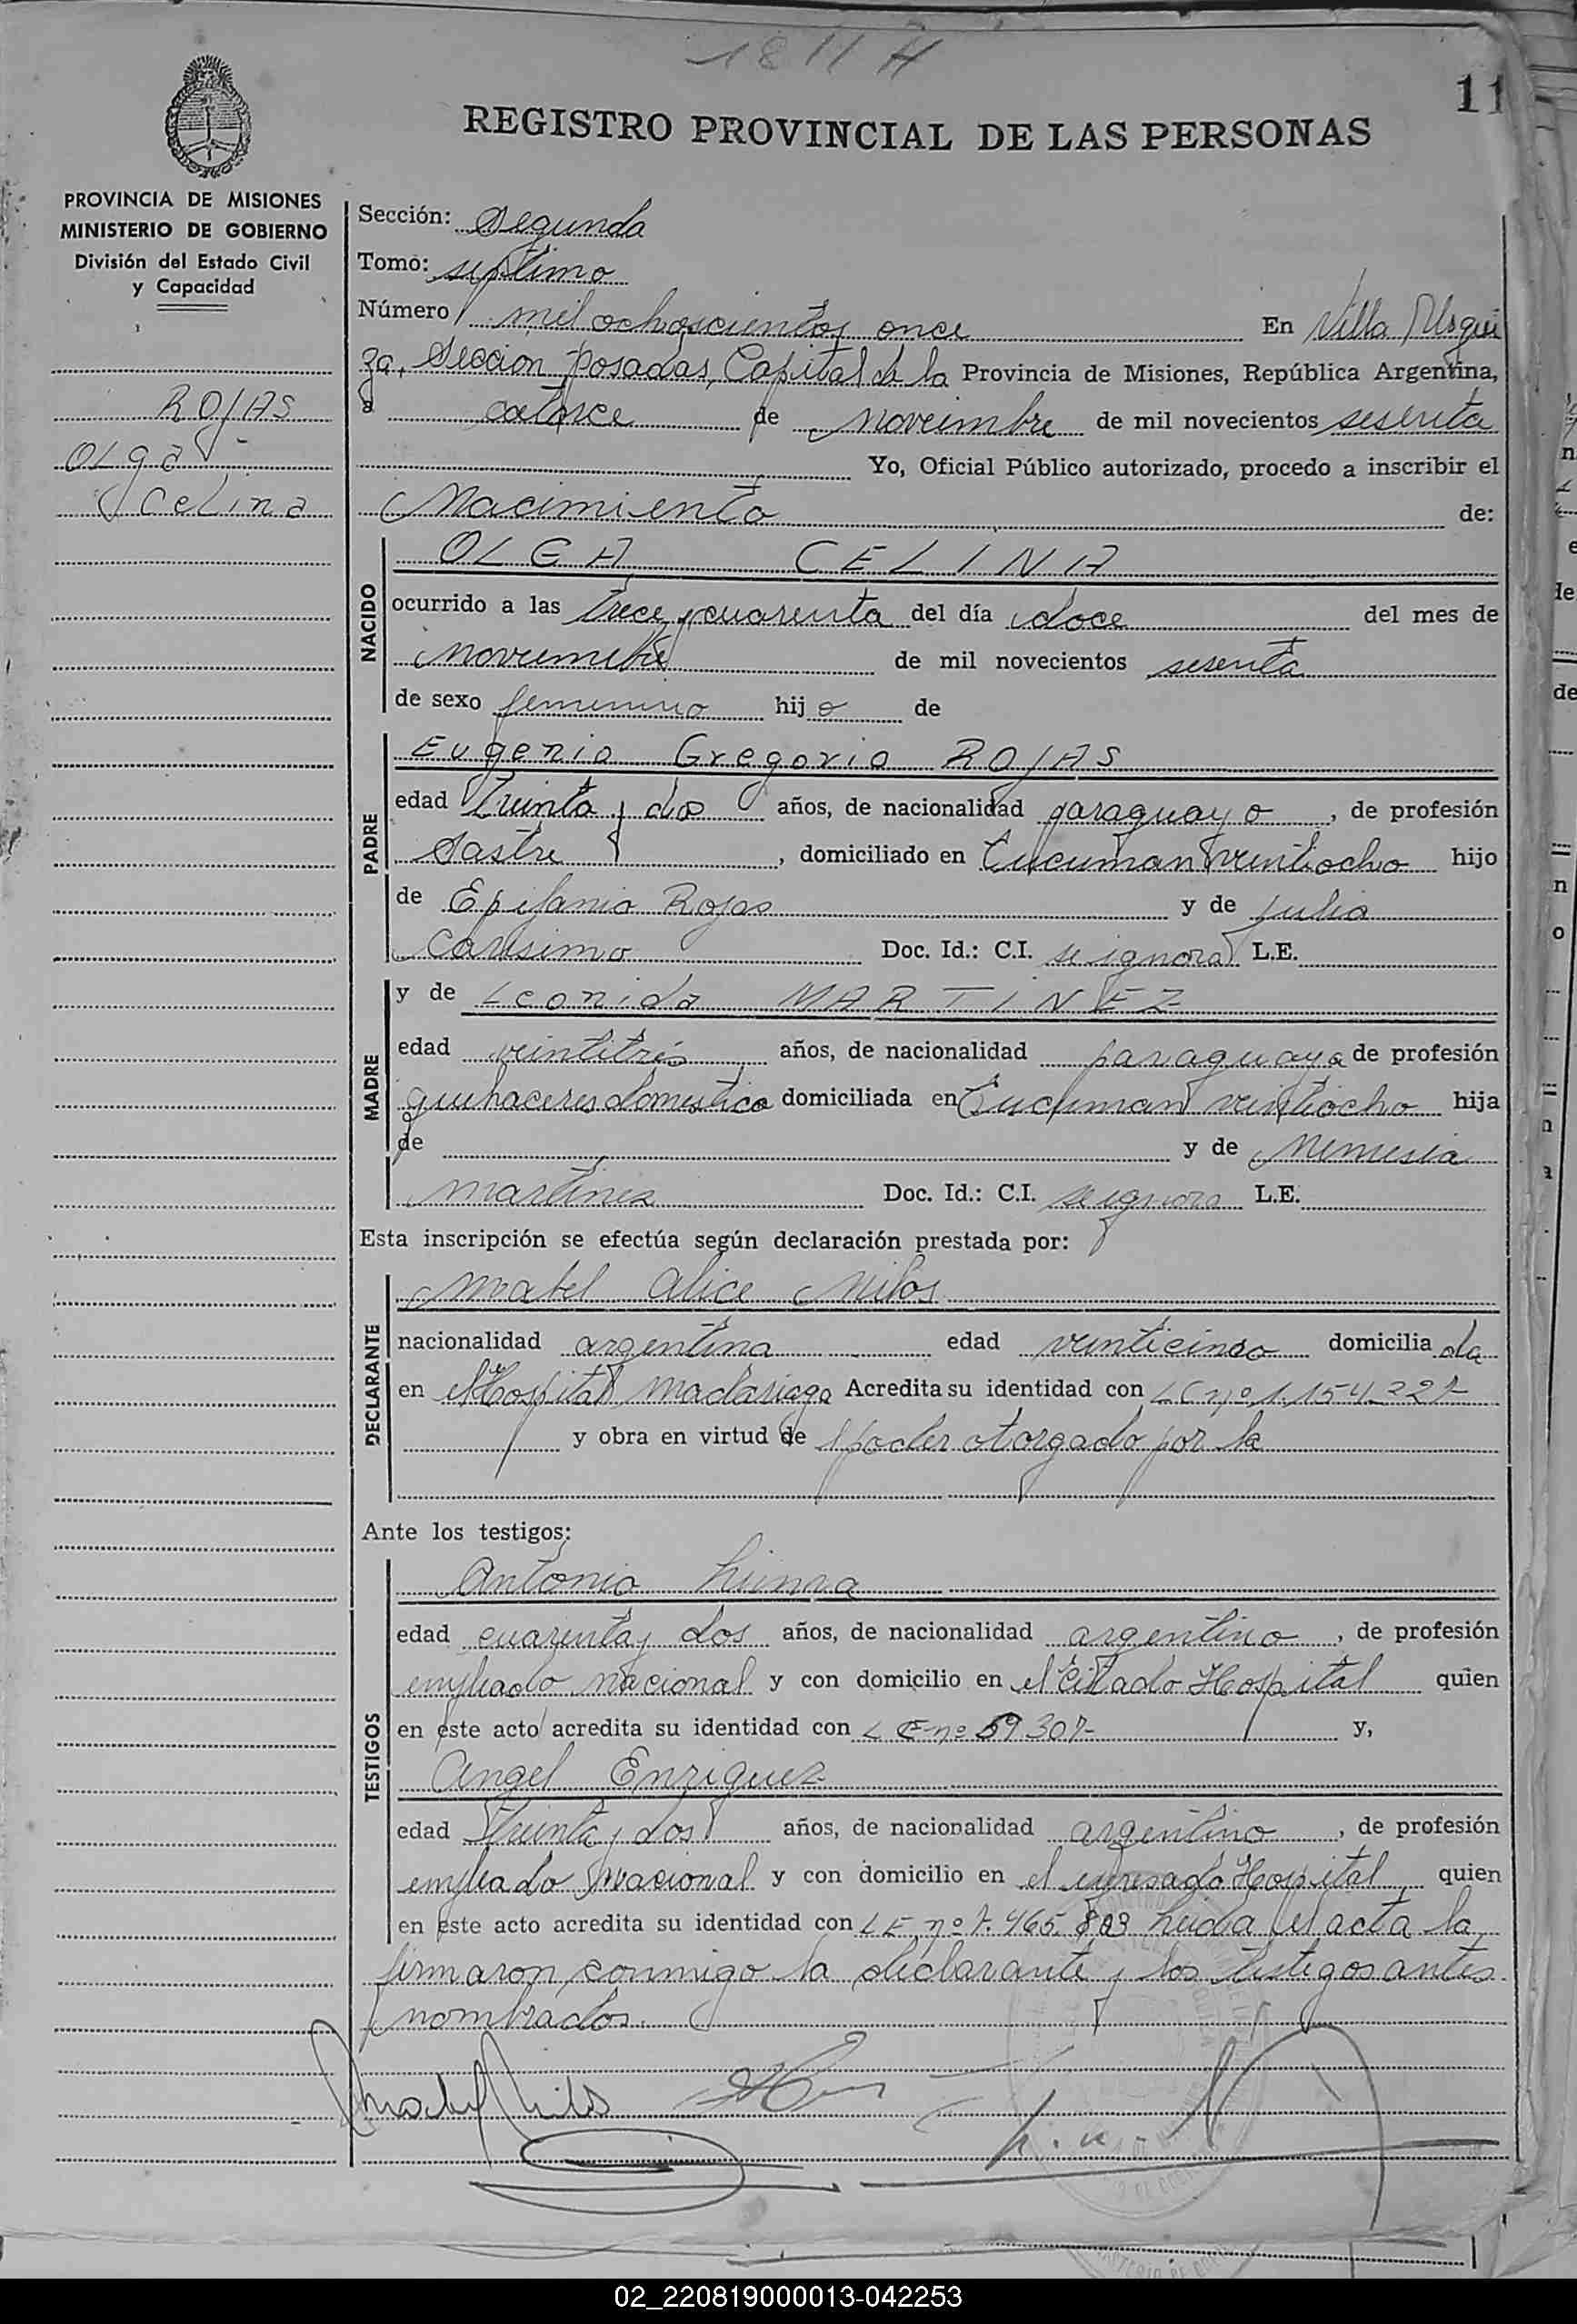 1811 H
11
REGISTRO PROVINCIAL DE LAS PERSONAS
PROVINCIA DE MISIONES
MINISTERIO DE GOBIERNO
División del Estado Civil
y Capacidad
ROJAS
Olga
Celina
Sección: Segunda
Tomo: septimo
Número mil ochoscientos once En Villa Urqui
za, Seccion Posadas, Capital de la Provincia de Misiones, República Argentina,
a catorce de noveimbre de mil novecientos sesenta
Yo, Oficial Público autorizado, procedo a inscribir el
Nacimiento de:
NACIDO
OLGA CELINA
ocurrido a las trece y cuarenta del día doce del mes de
noviembre de mil novecientos sesenta
de sexo femenino hij o de
PADRE
Eugenio Gregorio ROJAS
edad treinta y dos años, de nacionalidad paraguayo, de profesión
Sastre, domiciliado en Tucuman veintiocho hijo
de Epifanio Rojas y de Julia
Carisimo Doc. Id.: C.I. se ignora L.E.
MADRE
y de Leonida MARTINEZ
edad veintitrés años, de nacionalidad paraguaya de profesión
quehaceres domestico domiciliada en Tucuman veintiocho hija
de y de Nemesia
Martinez Doc. Id.: C.I. se ignora L.E.
Esta inscripción se efectúa según declaración prestada por:
DECLARANTE
Mabel Alice
nacionalidad argentina edad veinticinco domicilia da
en el Hospital Madariaga Acredita su identidad con LC nº 1.154.227
y obra en virtud de poder otorgado por la
Ante los testigos:
TESTIGOS
Antonio
edad cuarenta y dos años, de nacionalidad argentino, de profesión
empleado nacional y con domicilio en el citado Hospital quien
en este acto acredita su identidad con L E nº 59307 y,
Angel Enriquez
edad treinta y dos años, de nacionalidad argentino, de profesión
empleado nacional y con domicilio en el expresado Hospital quien
en este acto acredita su identidad con LE nº 7.465.803 leida el acta la
firmaron conmigo la declarante y los testigos antes
nombrados.
02_220819000013-042253